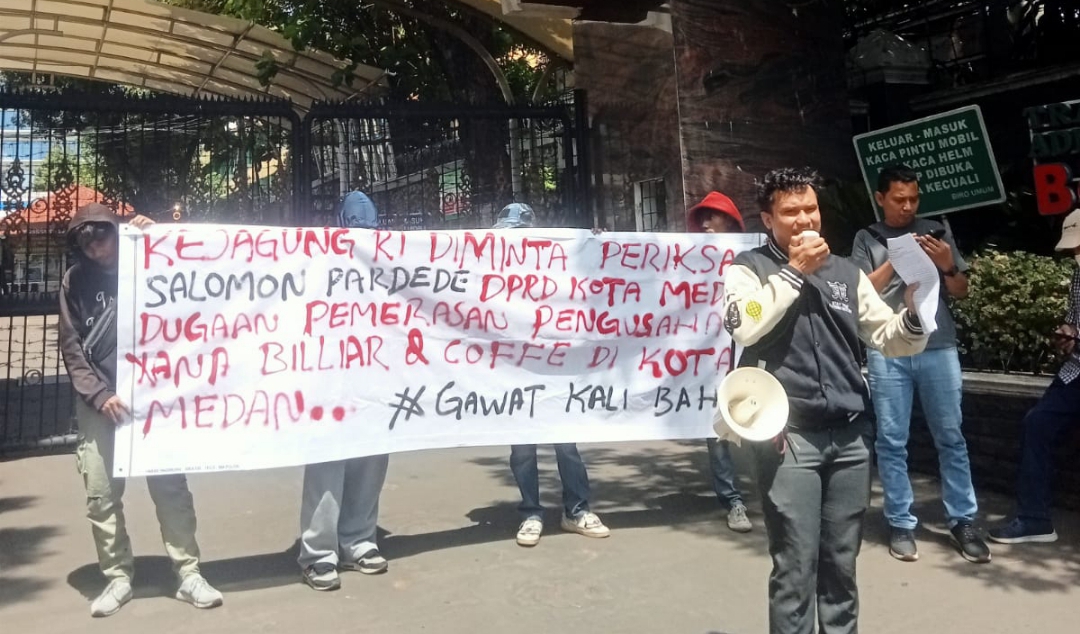 KEJAGUNG RI DIMINTA PERIKSA
SALOMON PARDEDE DPRD KOTA MED
DUGAAN PEMERASAN PENGUSAHA
XANA BILLIAR & COFFE DI KOTA
MEDAN...
#GAWAT KALI BAH
KELUAR - MASUK
KACA PINTU MOBIL
KACA HELM
DIBUKA
KECUALI
BIRO UMUM